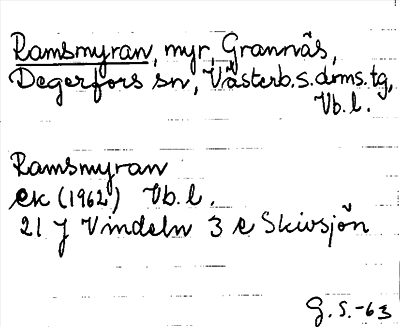 Ramsmyran, myr, Grannäs,
Degerfors sn, Västerb.s.doms.tg,
Vb.l.
Ramsmyran
ek (1962) Vb.l.
21 J Vindeln 3 e Skivsjön
G.S.-63